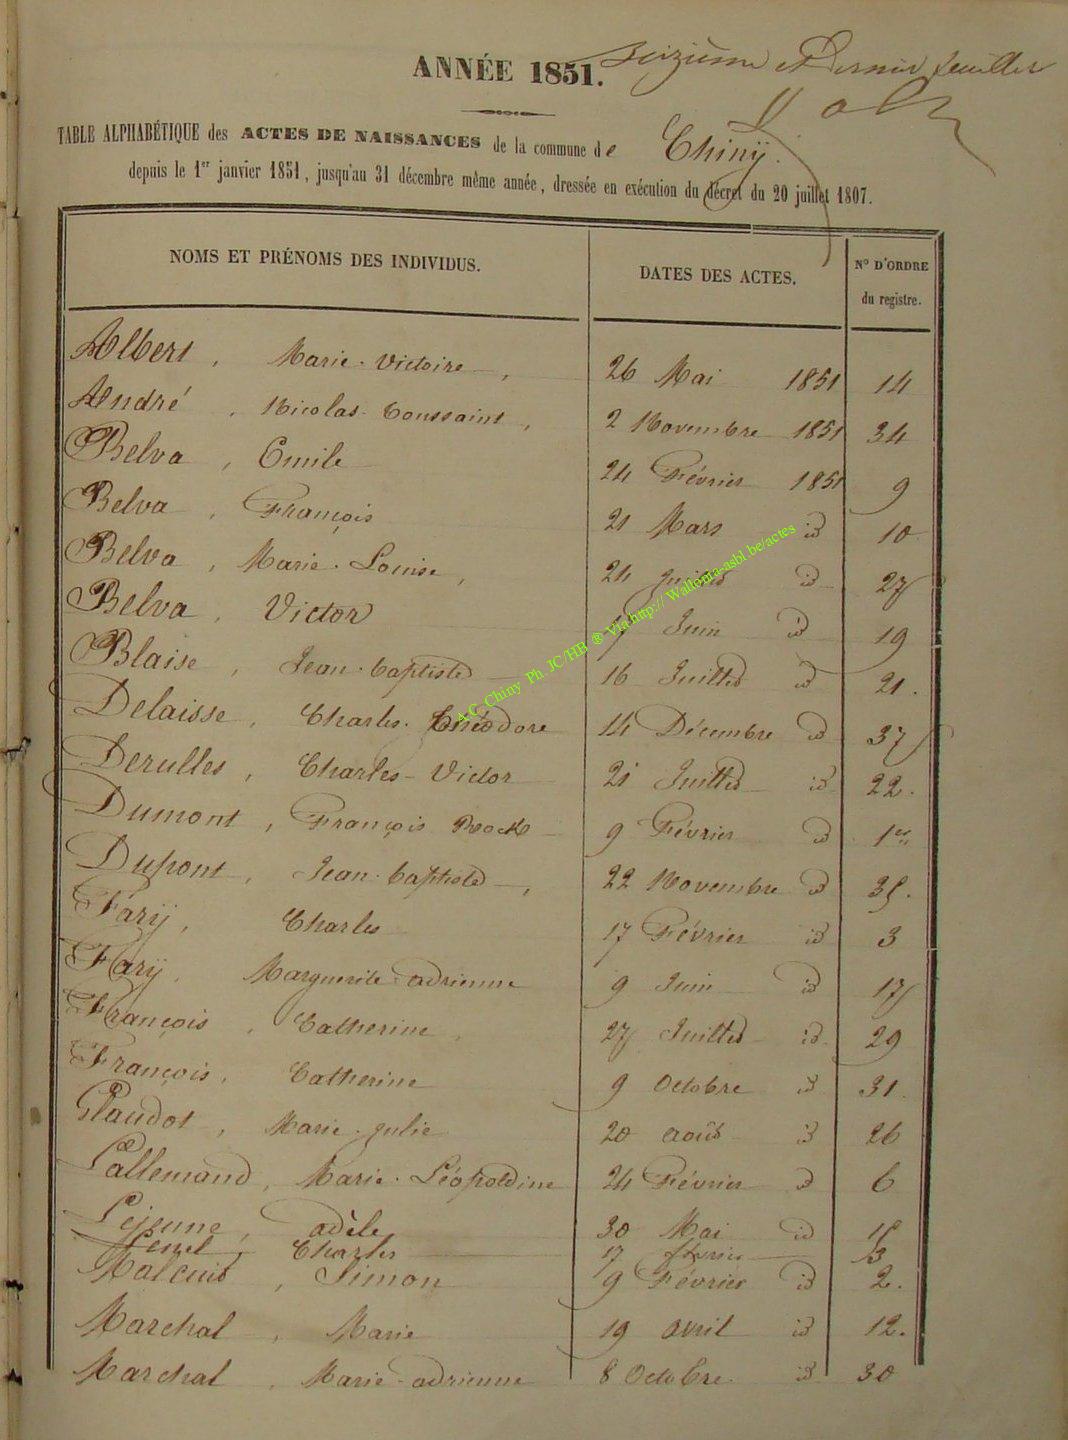 ANNÉE 1851. Seizième et Dernier feuillet
TABLE ALPHABÉTIQUE des ACTES DE NAISSANCES de la commune de Chinÿ.
depuis le 1er janvier 1851, jusqu'au 31 décembre même année, dressée en exécution du décret du 20 juillet 1807.
NOMS ET PRÉNOMS DES INDIVIDUS. DATES DES ACTES. N° D'ORDRE
du registre.
Albert, Marie-Victoire, 26 Mai 1851 14
André, Nicolas-Toussaint, 2 Novembre 1851 34
Belva, Emile 24 Février 1851 9
Belva, François 21 Mars id 10
Belva, Marie-Louise, 24 Juillet id 27
Belva, Victor 17 Juin id 19
Blaise, Jean-baptiste 16 Juillet id 21.
Delaisse, Charles-Théodore 14 Décembre id 37
Derulles, Charles-Victor 21 Juillet id 22.
Dumont, François Rock 9 Février id 1er
Dupont, Jean-baptiste, 22 Novembre id 35.
Farÿ, Charles 17 Février id 3
Farÿ, Marguerite-adrienne 9 Juin id 17
François, Catherine 27 Juillet id. 29
François, Catherine 9 Octobre id 31
Glaudot, Marie-Julie 20 août id 26
Lallemand, Marie-Léopoldine 24 Février id 6
Lejeune, adèle 30 Mai id 15
Charles 17 février 3
Simon 9 Février id 2.
Marchal, Marie 19 avril id 12.
Marchal, Marie-adrienne 8 Octobre id 30
A.C. Chiny Ph. JC/HB ® Via http:// Wallonia-asbl.be/actes